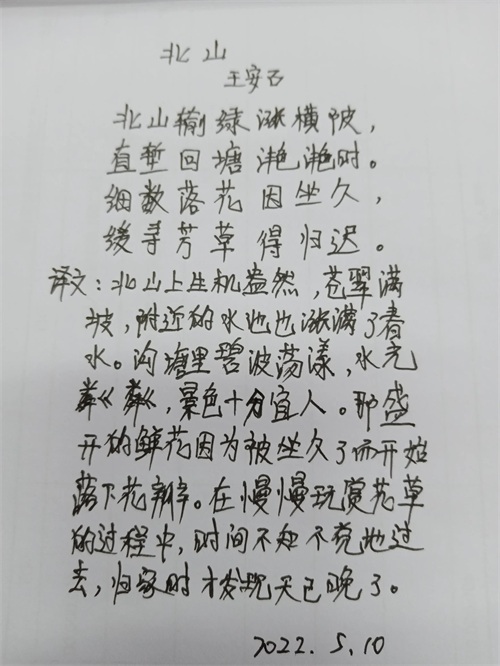 北山
王安石
北山输绿涨横陂，
直堑回塘滟滟时。
细数落花因坐久，
缓寻芳草得归迟。
译文：北山上生机盎然，苍翠满
坡，附近的水池也涨满了春
水。沟塘里碧波荡漾，水光
粼粼，景色十分宜人。那盛
开的鲜花因为被坐久了而开始
落下花瓣。在慢慢玩赏花草
的过程中，时间不知不觉地过
去，归家时才发现天已晚了。
2022.5.10